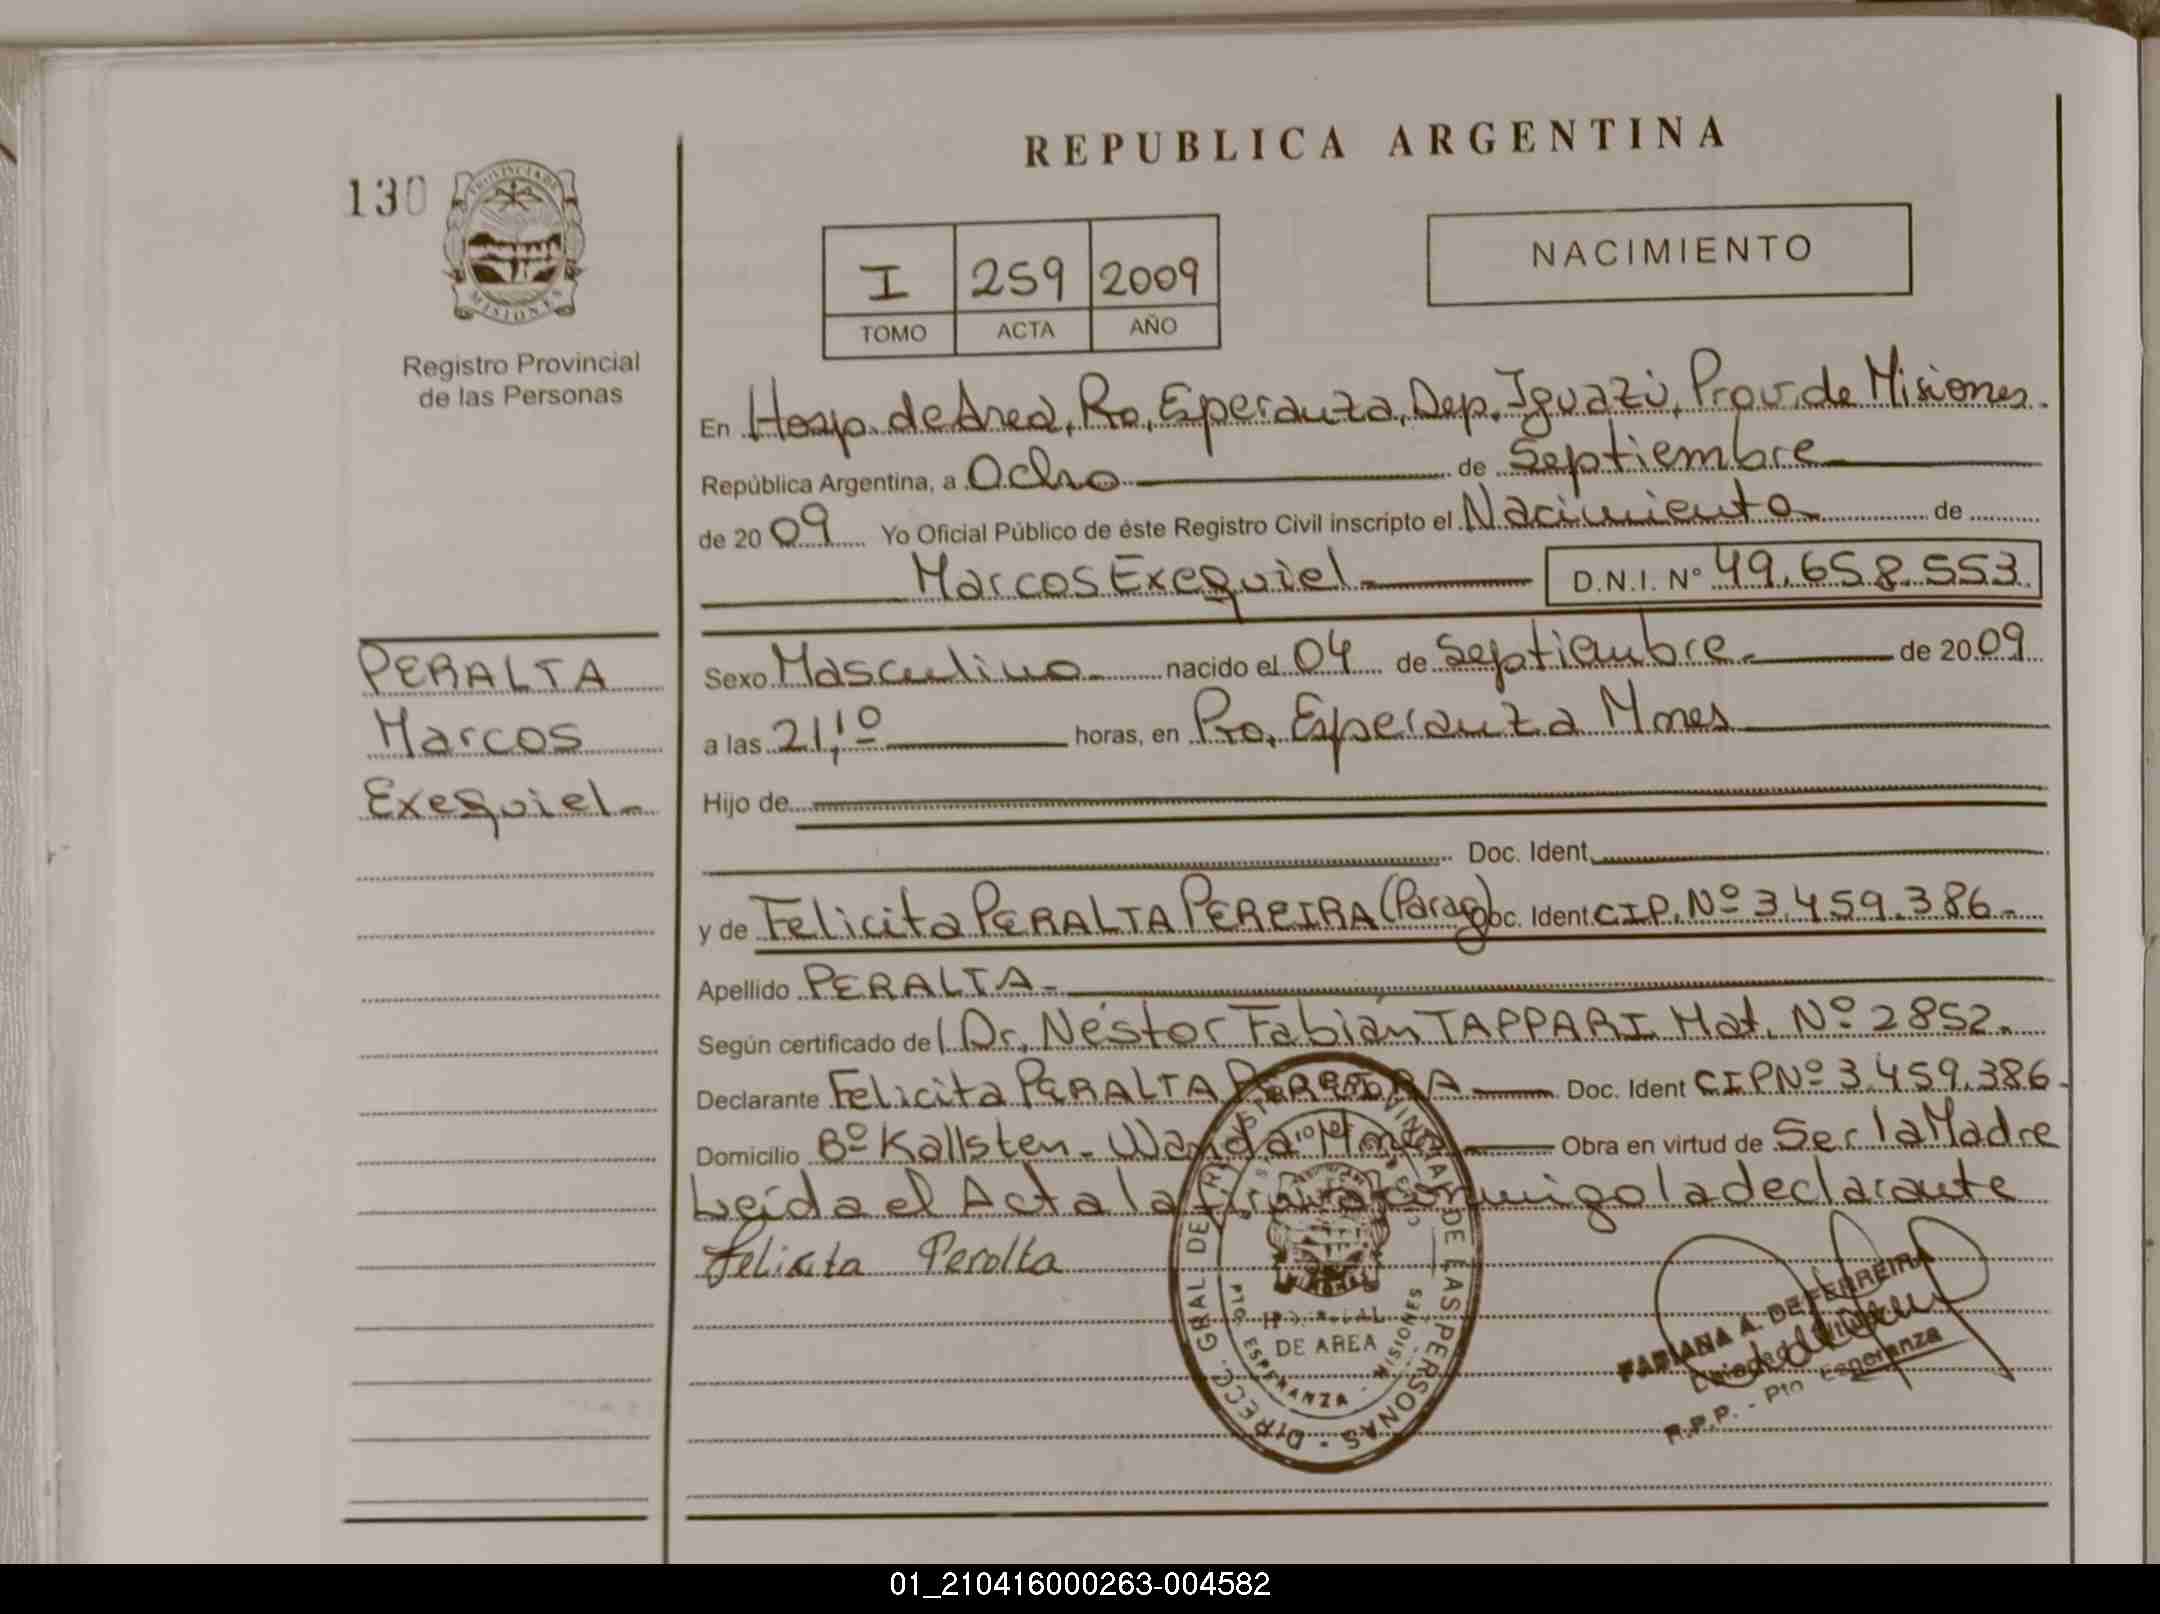 REPUBLICA ARGENTINA
130
PROVINCIA DE
MISIONES
Registro Provincial
de las Personas
I 259 2009
TOMO ACTA AÑO
NACIMIENTO
En Hosp. de Area, Pto, Esperanza, Dep. Iguazú, Prov. de Misiones.
República Argentina, a Ocho de Septiembre
de 20 09 Yo Oficial Público de éste Registro Civil inscripto el Nacimiento de
Marcos Exequiel D.N.I. Nº 49.658.553
PERALTA
Marcos
Exequiel
Sexo Masculino nacido el 04 de Septiembre. de 20 09
a las 21,10 horas, en Pto, Esperanza Mnes
Hijo de
Doc. Ident.
y de Felicita PERALTA PEREIRA (Parag) Doc. Ident CIP. Nº 3.459.386
Apellido PERALTA
Según certificado del Dr. Néstor Fabián TAPPARI Mat. Nº 2852
Declarante Felicita PERALTA PEREIRA Doc. Ident CIP Nº 3.459.386
Domicilio Bº Kallsten - Wanda Mnes Obra en virtud de Ser la Madre
Leída el Acta la firma conmigo la declarante
Felicita Peralta
DIRECC. GRAL DE REGISTRO PROVINCIAL DE LAS PERSONAS
HOSPITAL
DE AREA
PTO. ESPERANZA - MISIONES
FABIANA A. DE FERREIRA
R.P.P. - Pto Esperanza
01_210416000263-004582